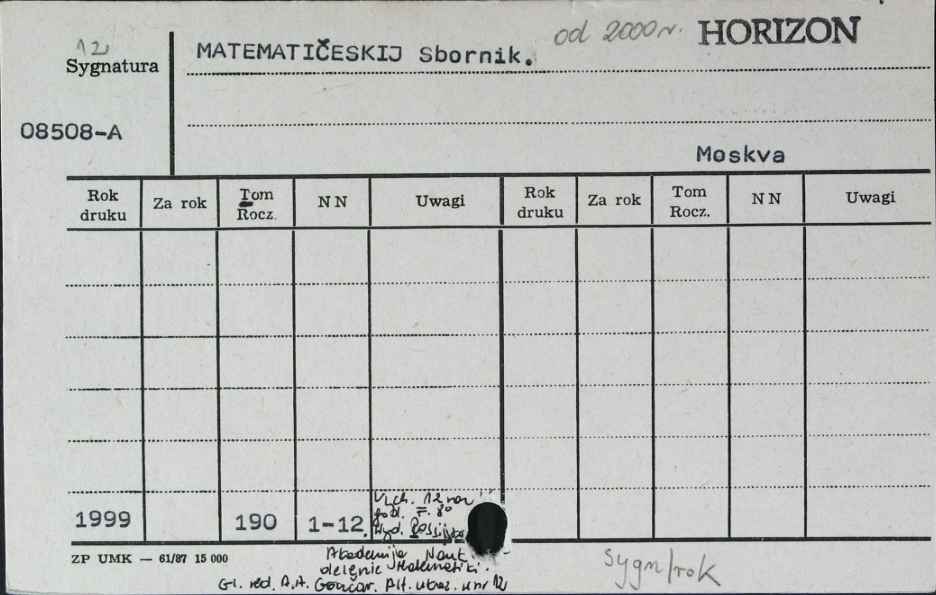 12
od 2000 r. HORIZON
Sygnatura
MATEMATIČESKIJ Sbornik.
08508-A
Moskva
Rok druku Za rok Tom Rocz. NN Uwagi Rok druku Za rok Tom Rocz. NN Uwagi
Uch. 12 raz
F. 8°
1999 190 1-12. Wyd. Rossijska
ZP UMK — 61/87 15 000
Akademija Nauk.
Matematiki.
Gl. red. A.A. Gončar.
sygn/rok